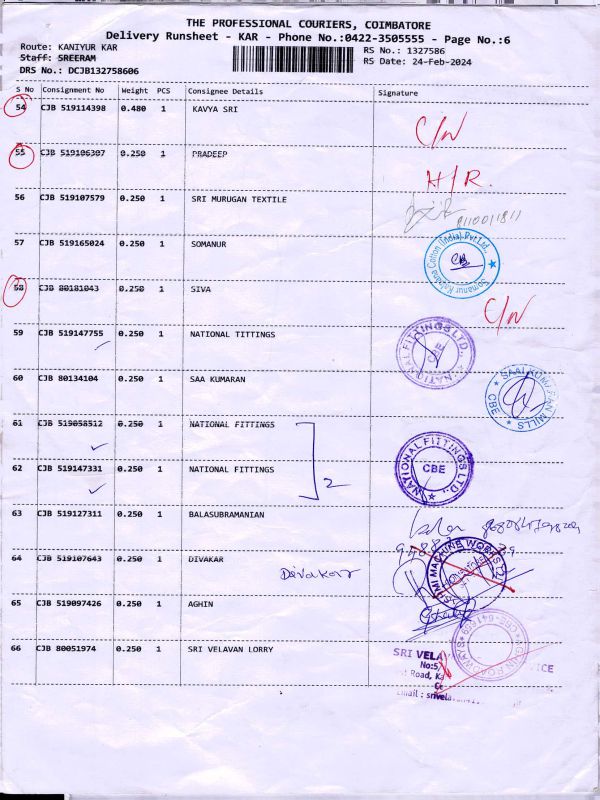 THE PROFESSIONAL COURIERS, COIMBATORE
Delivery Runsheet - KAR - Phone No.:0422-3505555 - Page No.:6
Route: KANIYUR KAR
RS No.: 1327586
Staff: SREERAM
RS Date: 24-Feb-2024
DRS No.: DCJB132758606
S No Consignment No Weight PCS Consignee Details Signature
54 CJB 519114398 0.480 1 KAVYA SRI
C/N
55 CJB 519106307 0.250 1 PRADEEP
H/R.
56 CJB 519107579 0.250 1 SRI MURUGAN TEXTILE
57 CJB 519165024 0.250 1 SOMANUR
58 CJB 80181043 0.250 1 SIVA
C/N
59 CJB 519147755 0.250 1 NATIONAL TITTINGS
NATIONAL FITTINGS LTD.
60 CJB 80134104 0.250 1 SAA KUMARAN
CBE
61 CJB 519058512 0.250 1 NATIONAL FITTINGS
62 CJB 519147331 0.250 1 NATIONAL FITTINGS
2
NATIONAL FITTINGS LTD.
CBE
63 CJB 519127311 0.250 1 BALASUBRAMANIAN
64 CJB 519107643 0.250 1 DIVAKAR
Divakar
MACHINE WORKS
65 CJB 519097426 0.250 1 AGHIN
ROADWAYS
66 CJB 80051974 0.250 1 SRI VELAVAN LORRY
SRI VELA
No:5/
Road, Ka